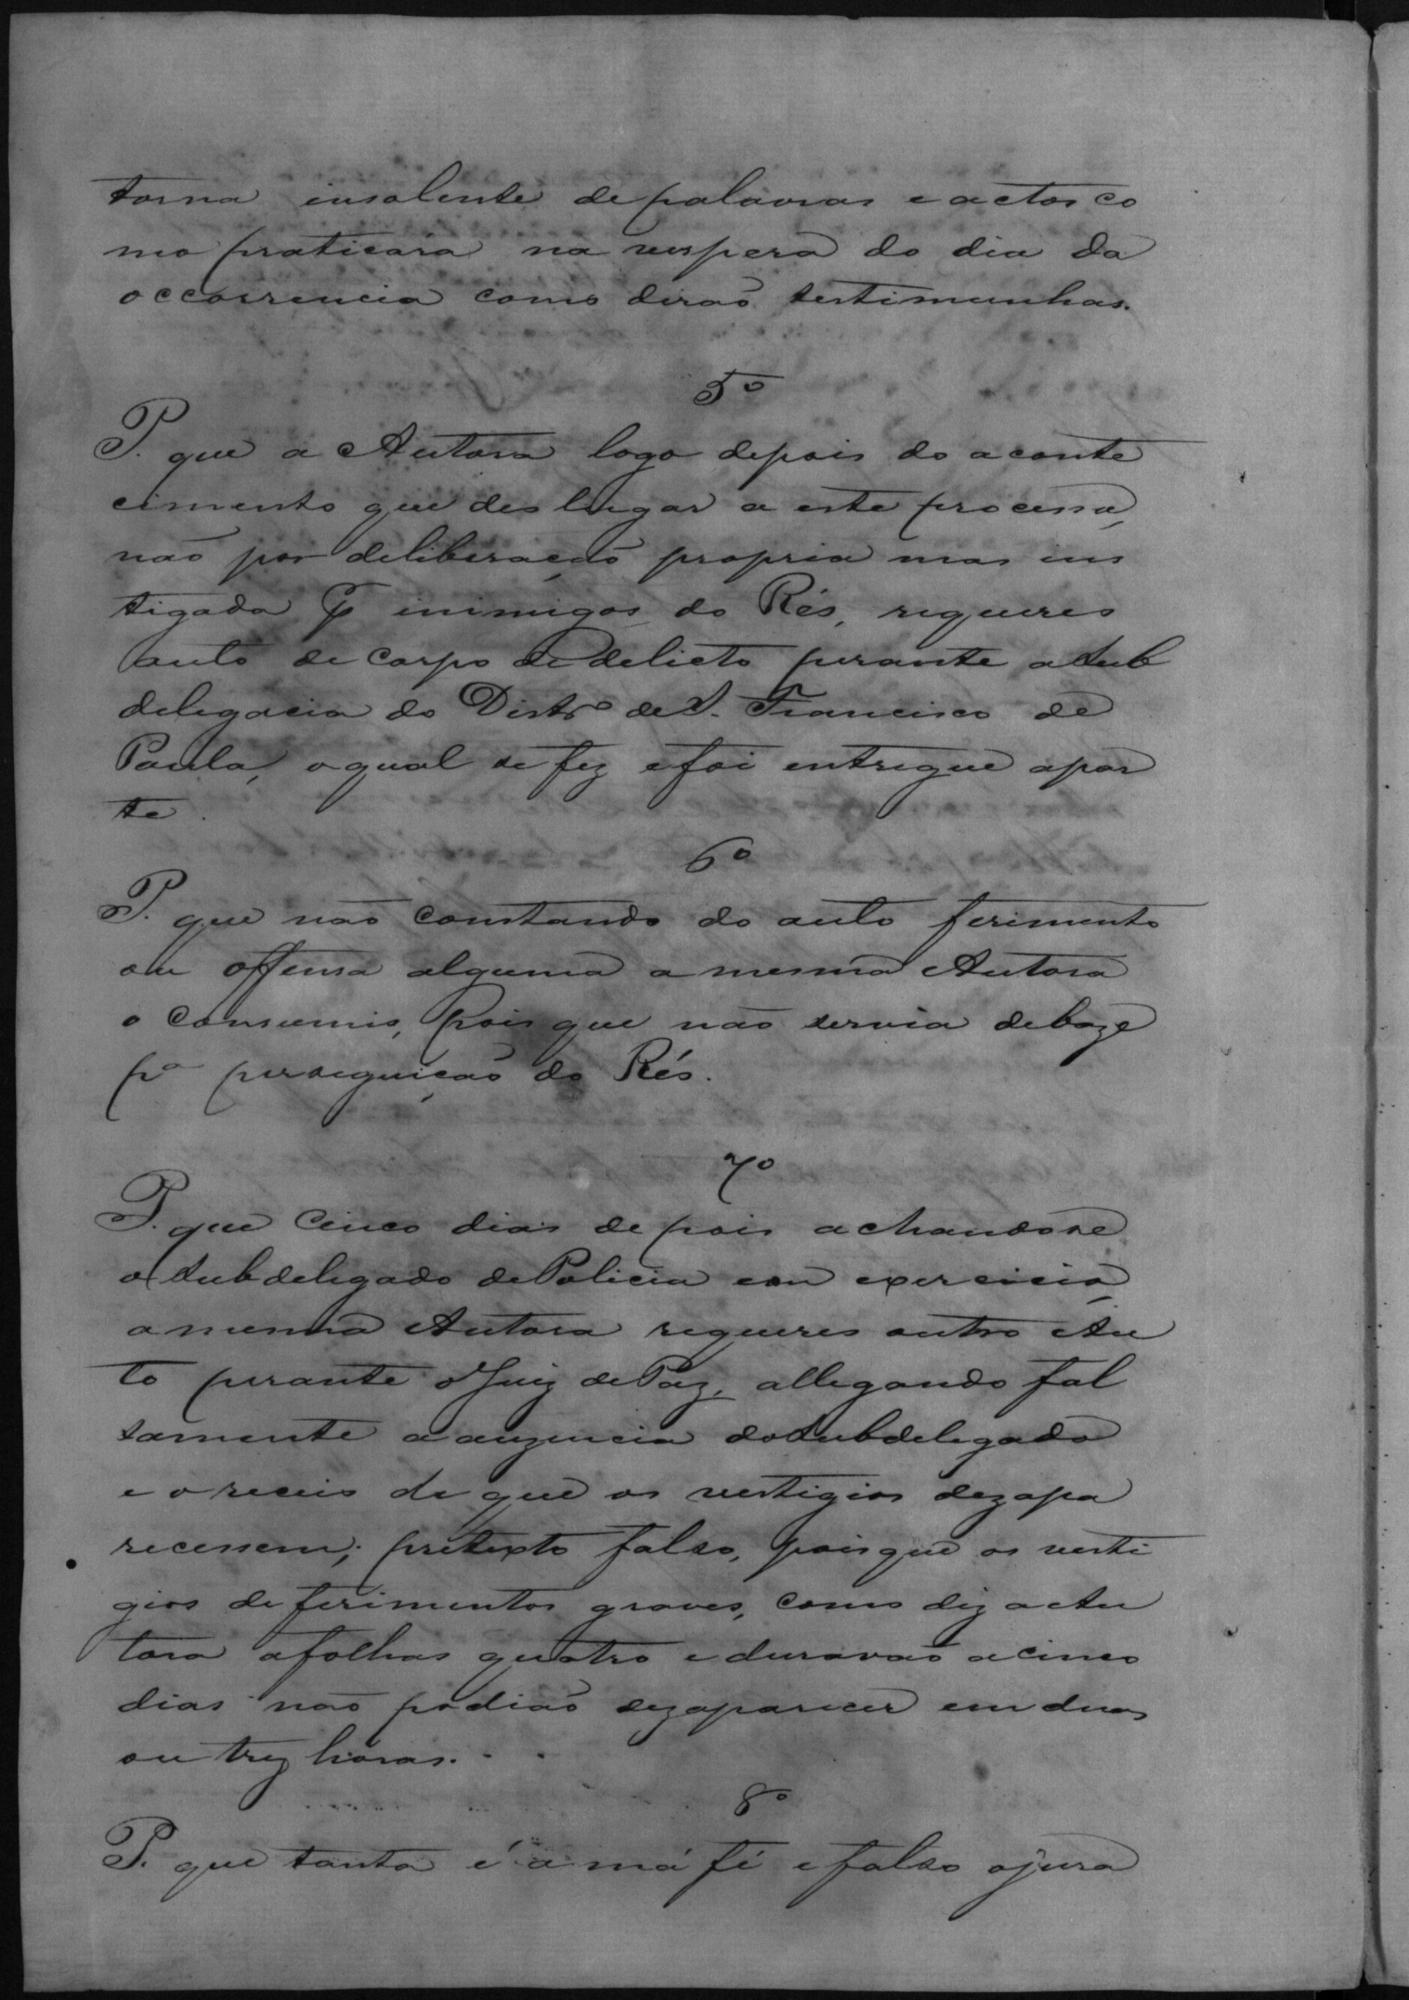 torna insolente de palavras e actos co
mo praticara na vespera do dia da
occorrencia como dirão testimunhas.
5º
P. que a Autora logo depois do aconte
cimento que deo lugar a este processo,
não por deliberação propria mas ins
tigada por inimigos do Réo, requereo
auto de corpo de delicto perante a Sub
delegacia do Distrº de S. Francisco de
Paula, o qual se fez e foi entregue a par
te.
6º
P. que não constando do auto ferimento
ou offensa alguma a mesma Autora
o consumio, pois que não servia de baze
pª perseguição do Réo.
7º
P. que cinco dias depois achandose
o Subdelegado de Policia em exercicio,
a mesma Autora requereo outro Au
to perante o Juiz de Paz, allegando fal
samente a auzencia do Subdelegado
e o receio de que os vestigios dezapa
recessem; pretexto falso, pois que os vesti
gios de ferimentos graves, como diz a Au
tora a folhas quatro e duravão a cinco
dias não podião dezaparecer em duas
ou trez horas.
8º
P. que tanta é a má fé e falso o jura